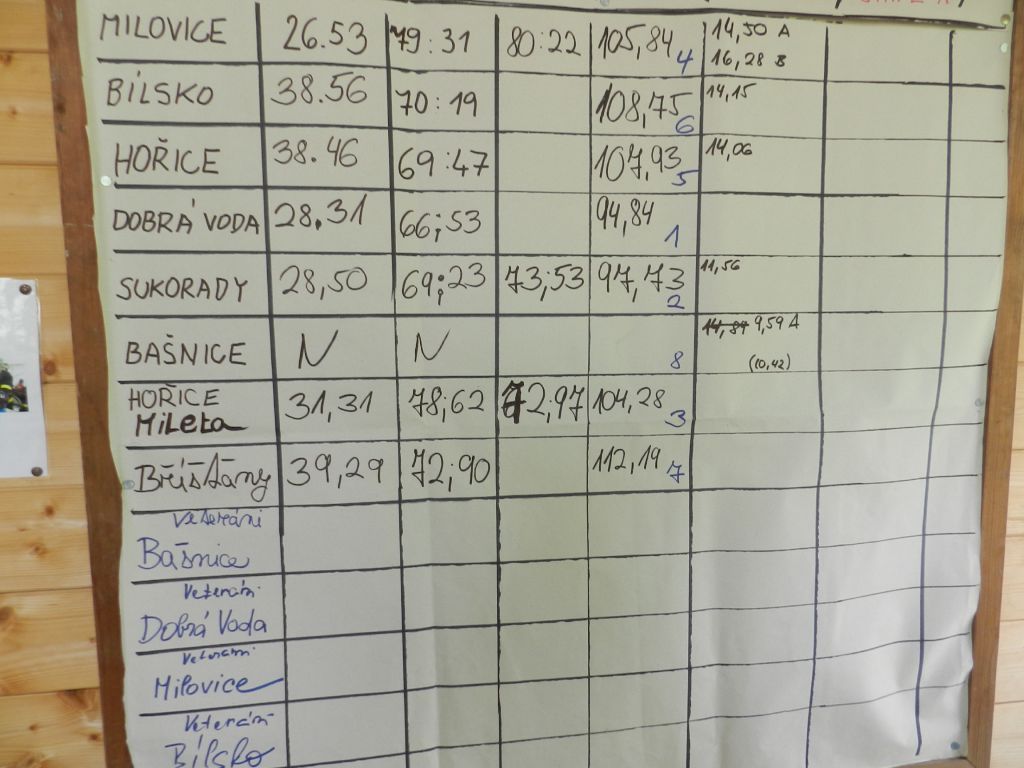 MILOVICE 26.53 79:31 80:22 105,84 4 14,50 A
16,28 B
BÍLSKO 38.56 70:19 108,75 6 14,15
HOŘICE 38.46 69:47 107,93 5 14,06
DOBRÁ VODA 28,31 66;53 94,84 1
SUKORADY 28,50 69;23 73;53 97,73 2 11,56
BAŠNICE N N 8 14,84 9,59 A
(10,42)
HOŘICE 31,31 78;62 72,97 104,28 3
Mileta
Bříšťany 39,29 72;90 112,19 7
Veteráni
Bašnice
Veteráni
Dobrá Voda
Veteráni
Milovice
Veteráni
Bílsko